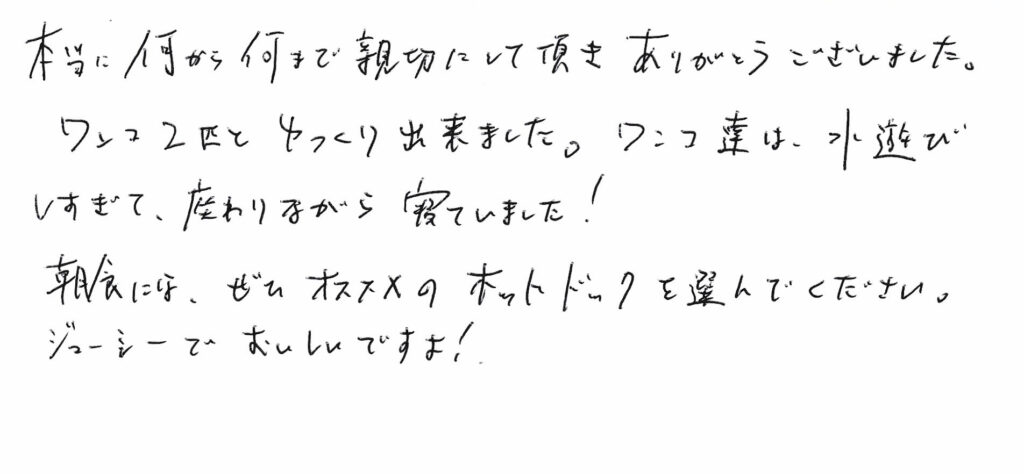 本当に何から何まで親切にして頂きありがとうございました。
ワンコ2匹とゆっくり出来ました。ワンコ達は、水遊び
しすぎて、座わりながら寝ていました!
朝食には、ぜひオススメのホットドックを選んでください。
ジューシーでおいしいですよ!